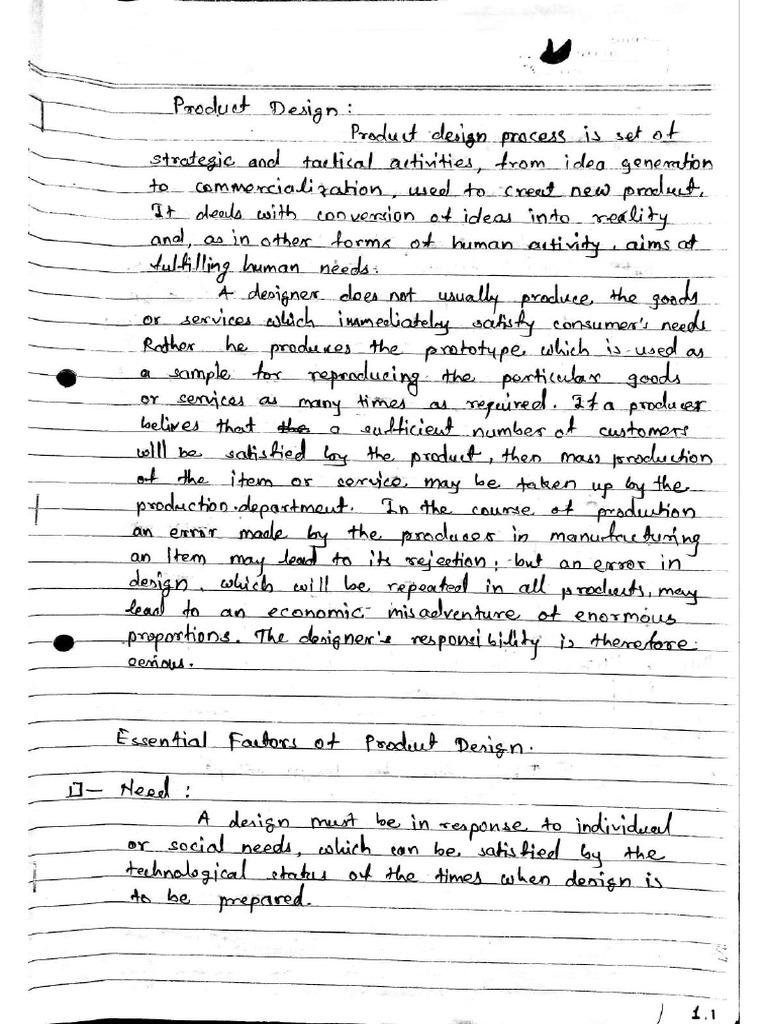 Product Design :
Product design process is set of
strategic and tactical activities, from idea generation
to commercialization, used to creat new product.
It deals with conversion of ideas into reality
and, as in other forms of human activity, aims at
fulfilling human needs.
A designer does not usually produce the goods
or services which immediately satisfy consumer's needs
Rather he produces the prototype which is used as
a sample for reproducing the particular goods
or services as many times as required. If a producer
belives that a sufficient number of customers
will be satisfied by the product, then mass production
of the item or service may be taken up by the
production department. In the course of production
an error made by the producer in manufacturing
an item may lead to its rejection; but an error in
design, which will be repeated in all products, may
lead to an economic misadventure of enormous
proportions. The designer's responsibility is therefore
serious.
Essential Factors of Product Design.
1]- Need :
A design must be in response to individual
or social needs, which can be satisfied by the
technological status of the times when design is
to be prepared.
1.1